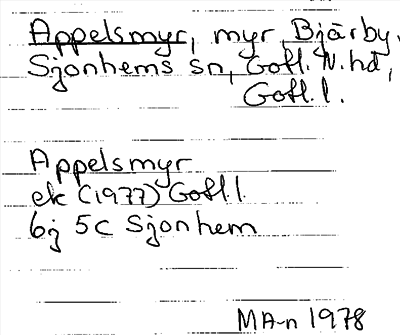 Appelsmyr, myr, Bjärby,
Sjonhems sn, Gotl. N. hd,
Gotl. l.
Appelsmyr
ek (1977) Gotl l
6j 5c Sjonhem
MA-n 1978